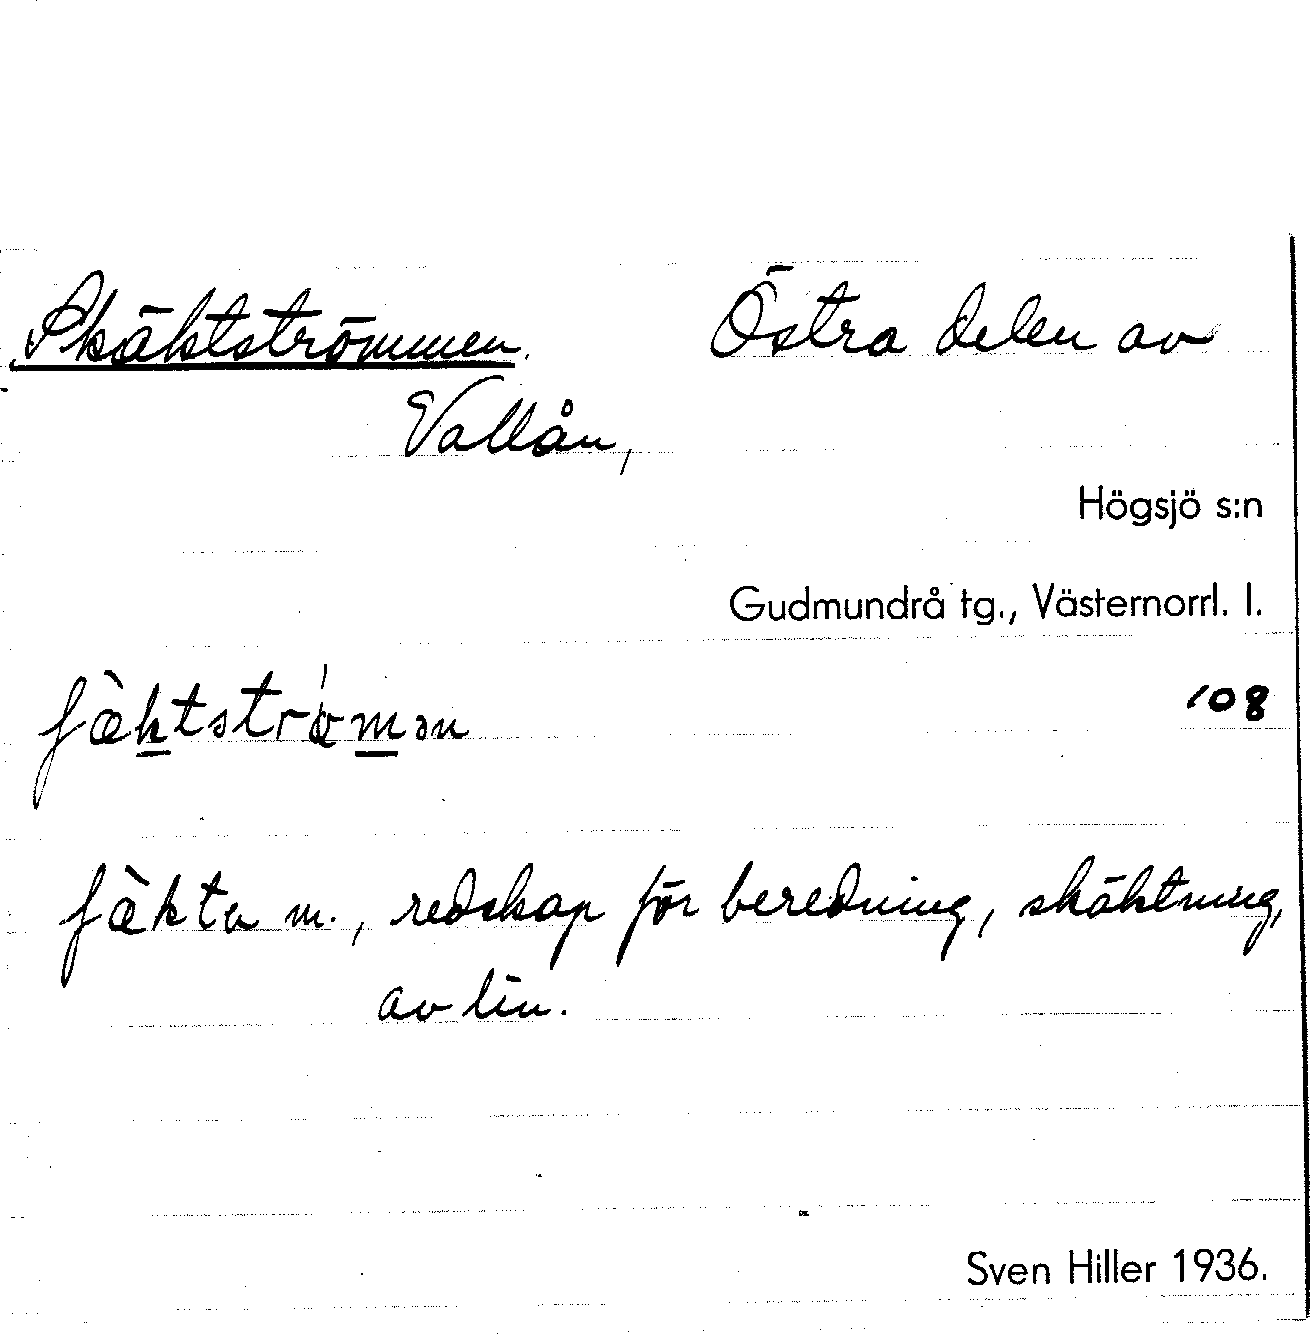 Skäktströmmen. Östra delen av
Vallån,
Högsjö s:n
Gudmundrå tg., Västernorrl. l.
ʃæ̀ktstrǿmən 108
ʃæ̀kta m., redskap för beredning, skäktning,
av lin.
Sven Hiller 1936.